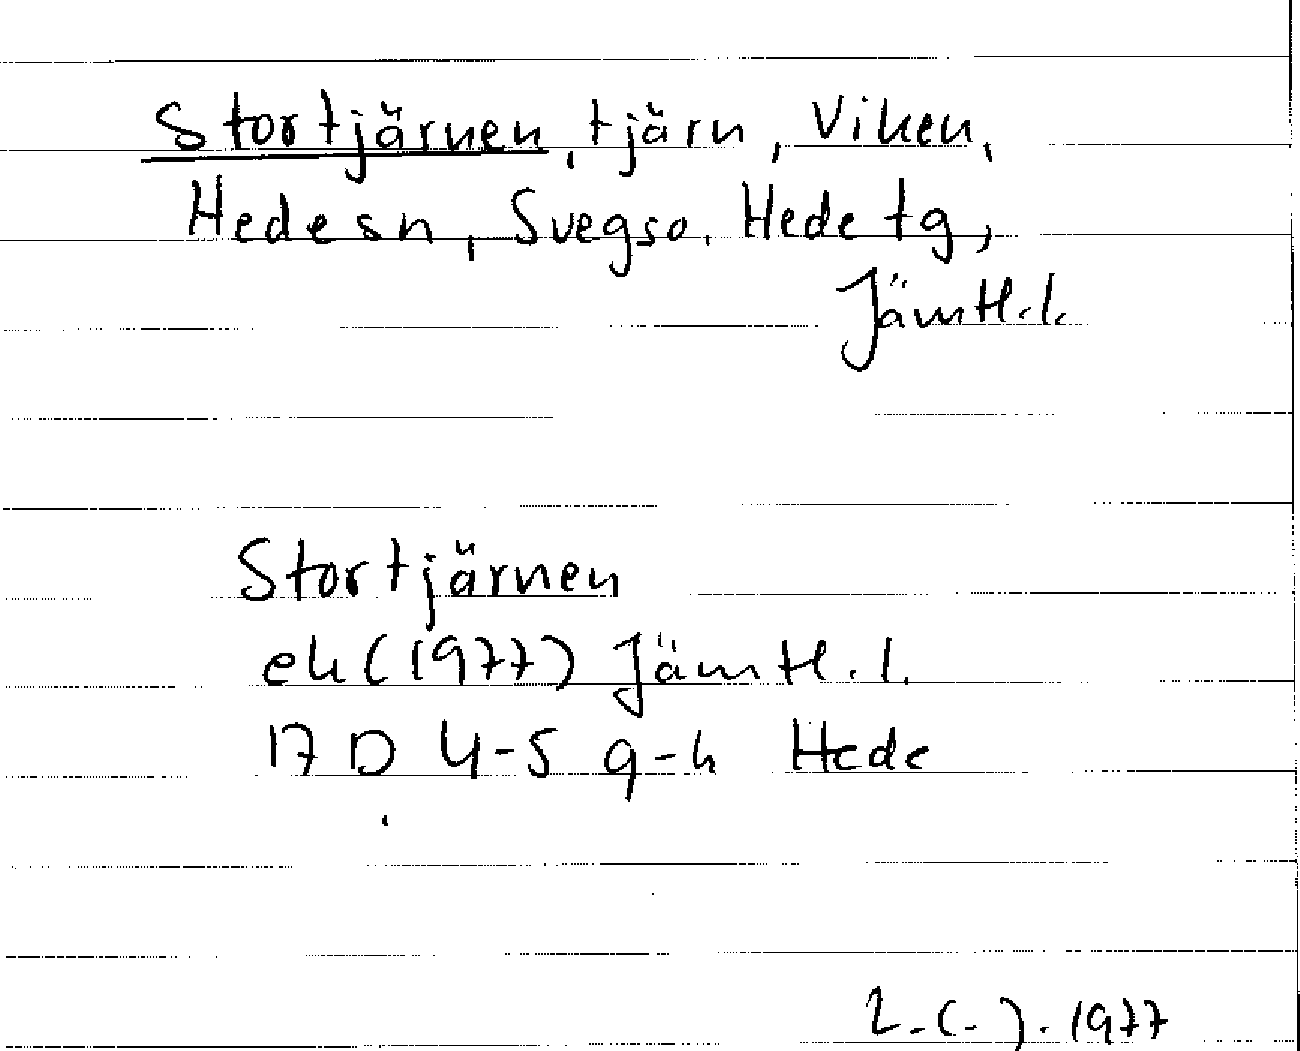 Stortjärnen, tjärn, Viken,
Hedesn, Svegso, Hede tg,
Jämtl.l.
Stortjärnen
ek (1977) Jämtl.l.
17 D 4-5 g-h Hede
1977